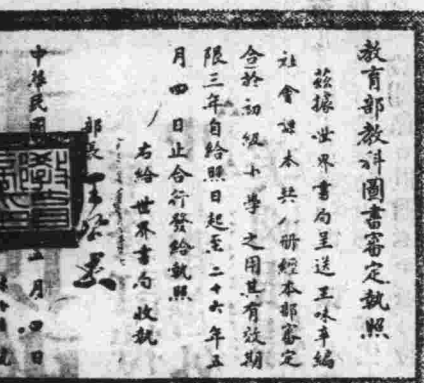 教育部教科圖書審定執照
茲據世界書局呈送王味辛編
社會課本共八冊經本部審定
合於初級小學之用其有效期
限三年自給照日起至二十六年五
月四日止合行發給執照
右給世界書局收執
部長王
中華民國 五月四日